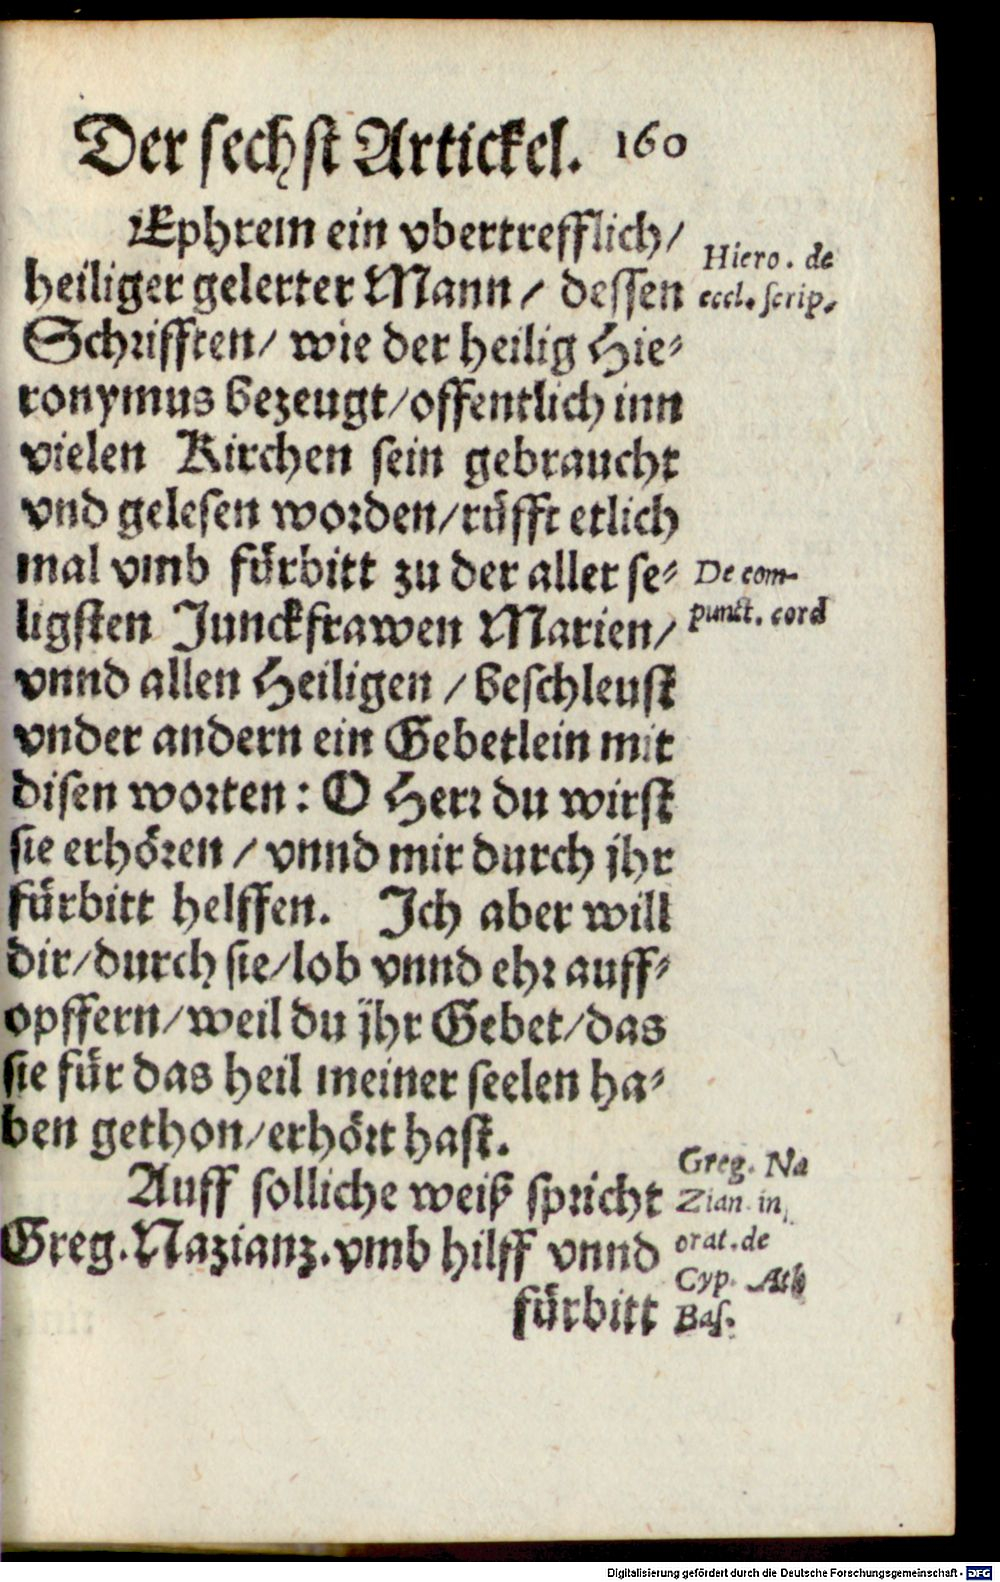 Der sechst Artickel. 160
Ephrem ein vbertrefflich/
heiliger gelerter Mann / dessen
Schrifften/ wie der heilig Hie-
ronymus bezeugt/offentlich inn
vielen Kirchen sein gebraucht
vnd gelesen worden/rüfft etlich
mal vmb fürbitt zu der aller se-
ligsten Junckfrawen Marien/
vnnd allen Heiligen / beschleust
vnder andern ein Gebetlein mit
disen worten: O Herr du wirst
sie erhören / vnnd mir durch jhr
fürbitt helffen. Ich aber will
dir/durch sie/lob vnnd ehr auff-
opffern/weil du jhr Gebet/das
sie für das heil meiner seelen ha-
ben gethon/erhört hast.
Auff solliche weiß spricht
Greg. Nazianz. vmb hilff vnnd
fürbitt
Hiero. de
eccl. scrip.
De com-
punct. cord
Greg. Na
Zian. in
orat. de
Cyp. Ath
Bas.
Digitalisierung gefördert durch die Deutsche Forschungsgemeinschaft - DFG